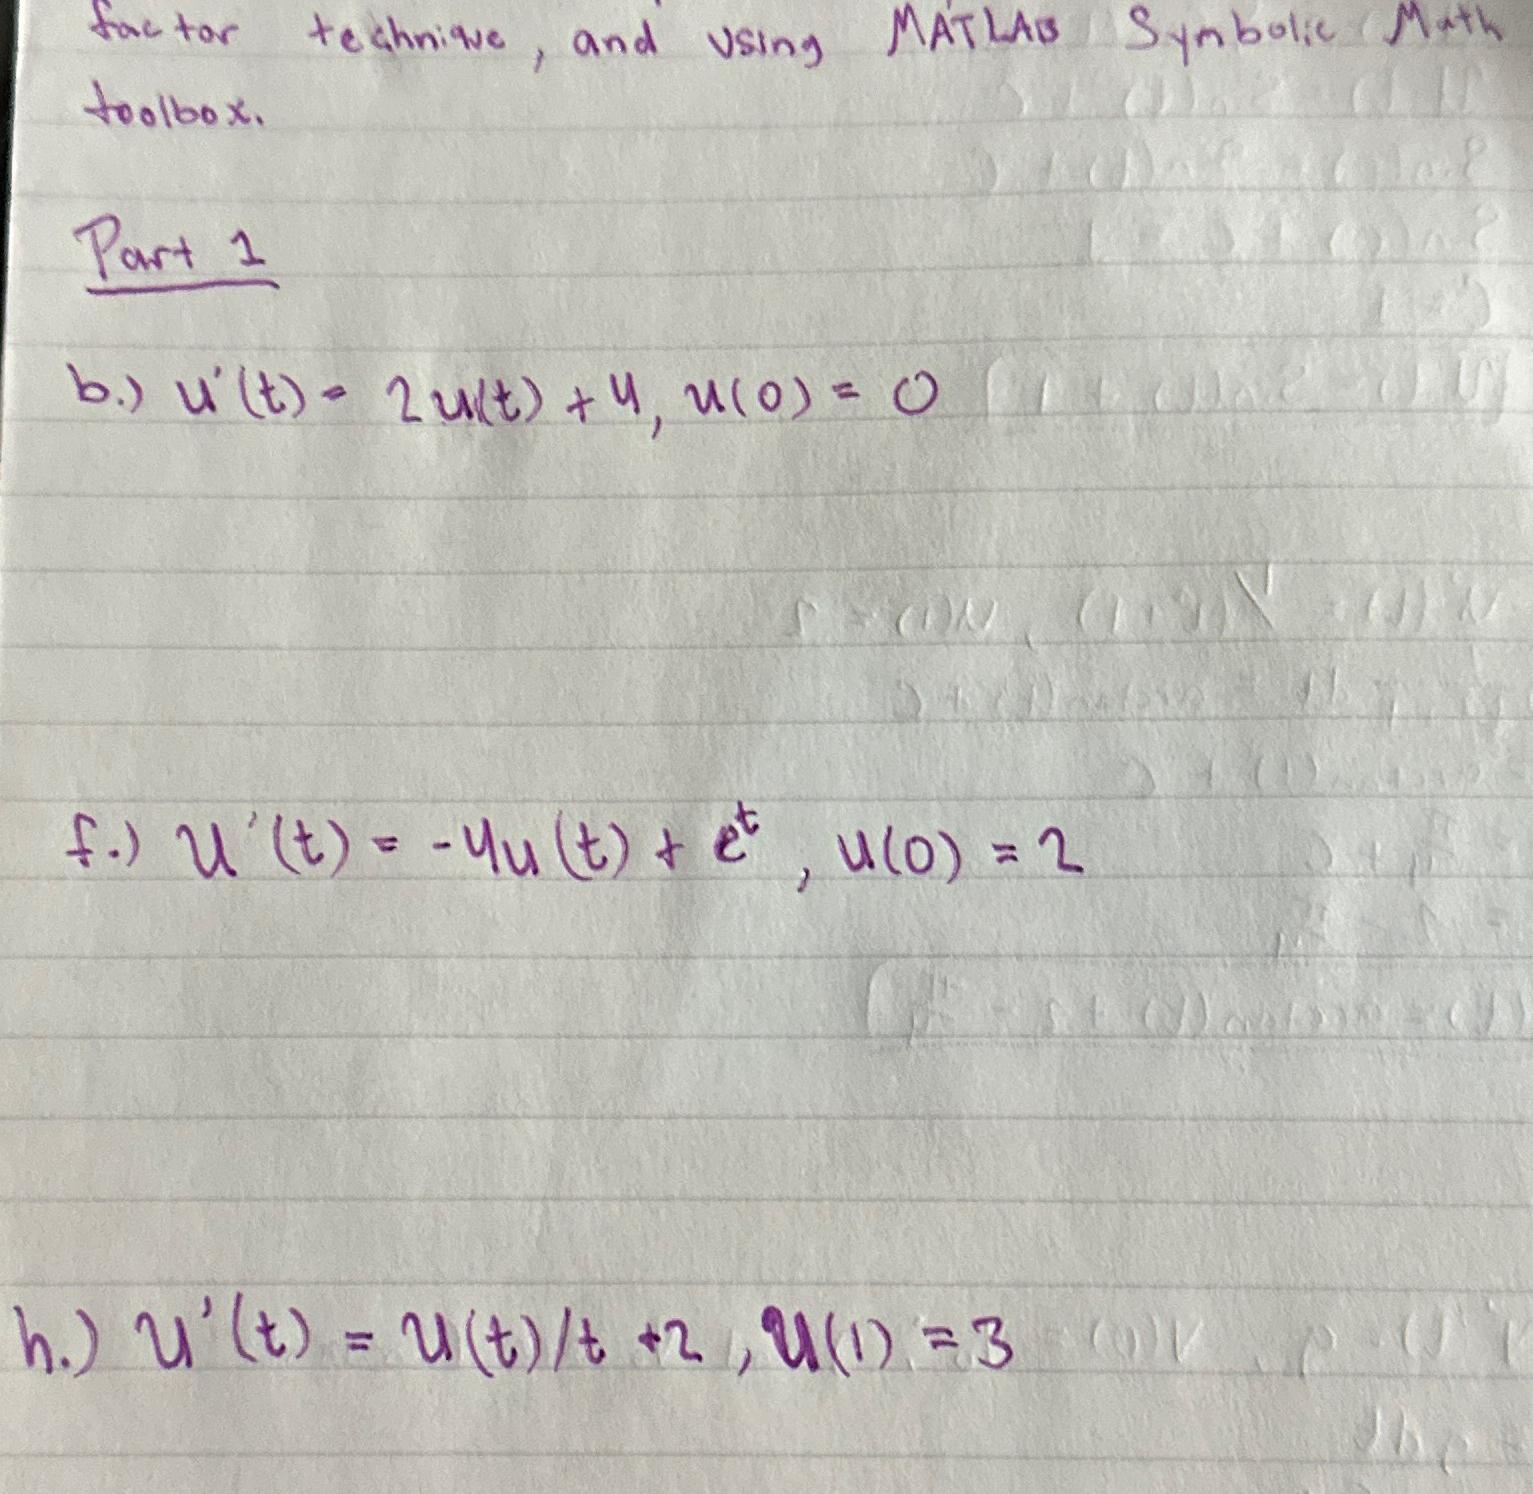 factor technique, and using MATLAB Symbolic Math
toolbox.
Part 1
b.) u'(t) = 2u(t) + 4, u(0) = 0
f.) u'(t) = -4u(t) + e^t, u(0) = 2
h.) u'(t) = u(t)/t +2, u(1) = 3